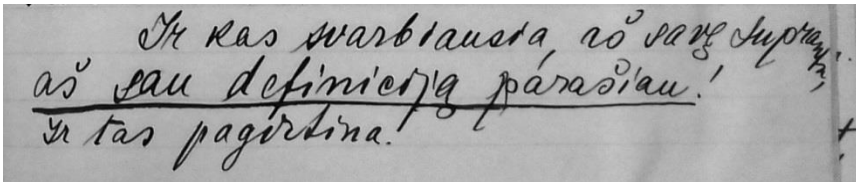 Ir kas svarbiausia, aš save suprantu,
aš sau definiciją parašiau!
Ir tas pagirtina.